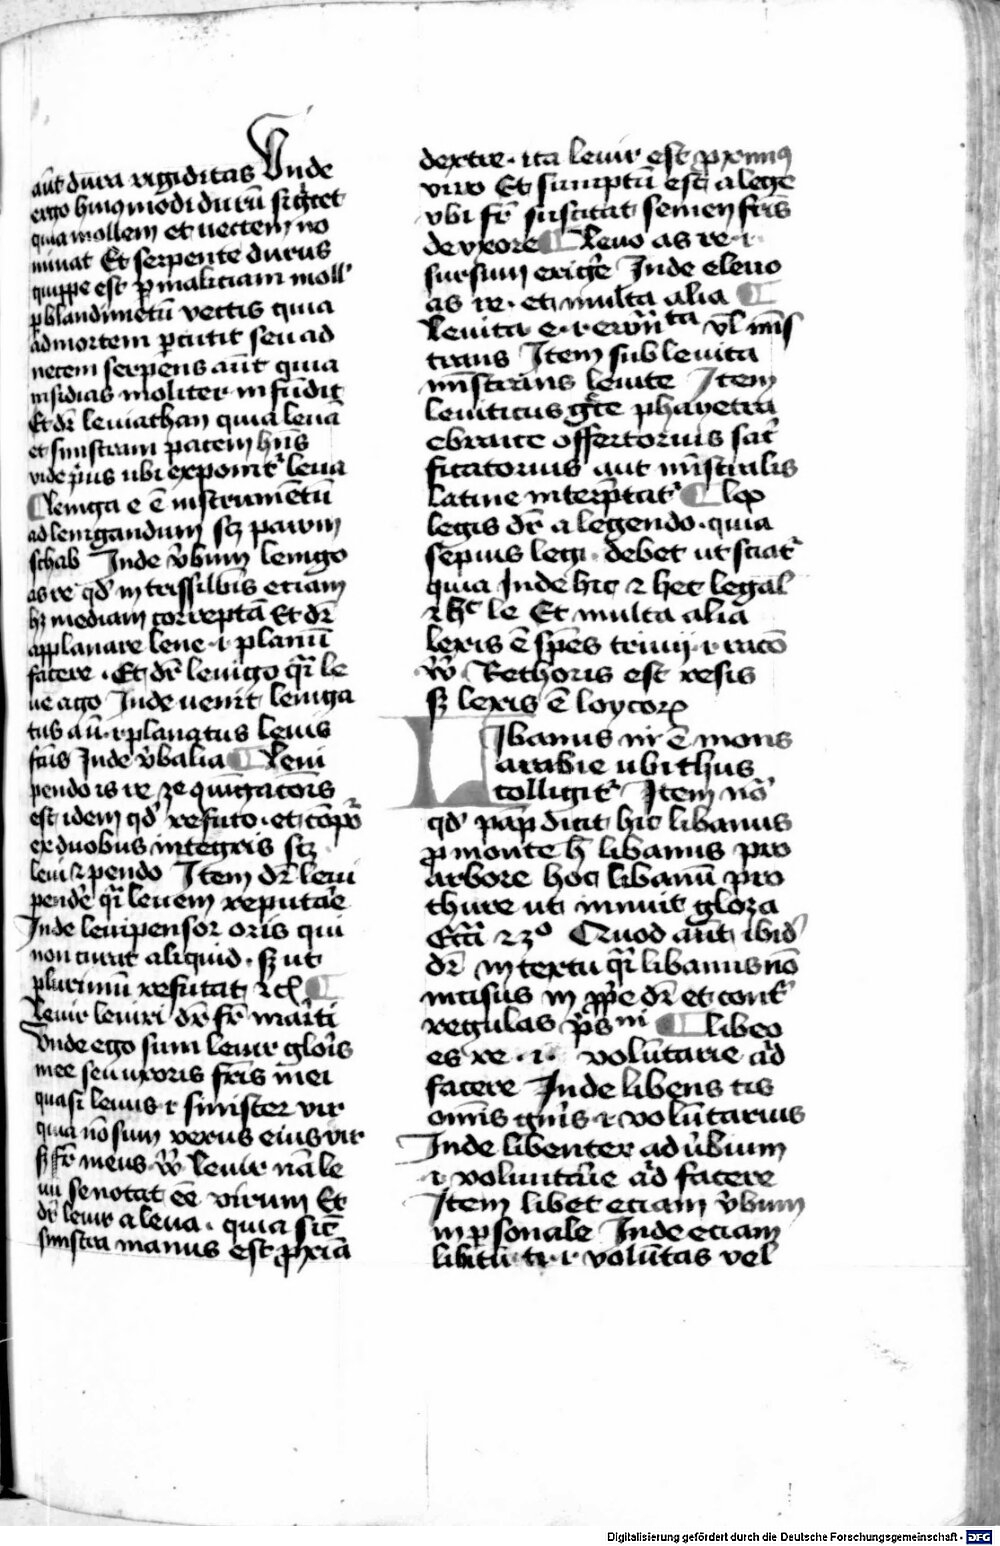 aūt dura rigiditas Vnde
ergo huiusmodi durū
quia mollem et uectem no
minat Et serpente durus
quippe est p maliciam moll'
p blandimētū vectis quia
ad mortem pcutit seu ad
necem serpens aūt quia
insidias moliter infūdit
Et dr̄ leuiathan quia leuā
et sinistram partem
vide prius ubi exponitr leua
¶ leuiga e ē instrumētū
ad leuigandum scz paruū
schab Inde v̄bum leuigo
as re qd' in trissilbis etiam
hz mediam correptā Et dr̄
applanare lene ·i· planū
facere · Et dr̄ leuigo qr̄ le
ue ago Inde uenit leuiga
tus a ū ·i· planatus leuis
Inde v̄balia ¶ Leui
pendo is re
est idem qd' refuto · et cōpor
ex duobus integris scz
leui z pendo Item dr̄ leui
pende qr̄ leuem reputare
Inde leuipensor oris qui
non curat aliquid · sz ut
plurimū refutat zcz ¶
Leuir leuiri dr̄ fr̄ mariti
Vnde ego sum leuir glorīs
mee seu uxoris fris mei
quasi leuus ·i· sinister vir
quia nō sum verus eius vir
sz fr̄ meus Leuir nā le
uir se notat eē virum Et
dr̄ leuir a leua · quia sic
sinistra manus est
dextre · ita leuir est
viro Et sumptū est a lege
vbi fr̄ suscitat semen fris
de vxore ¶ Leuo as re ·i·
sursum erigere Inde eleuo
as re · et multa alia ¶
Leuita e ·i· vl mīs
trans Item subleuita
mīstrans leuite Item
leuiticus gce
ebraice offertorius sacr
ficatorius aut mīstralis
Latine interptatr ¶ lex
legis dr̄ a legendo · quia
sepius legi debet ut sciatr
quia Inde hic z hec legal'
z hc le Et multa alia
lexis ē spēs
Rethoris est resis
sz lexis ē loycorz
Libanus ni ē mons
arabie ubi thus
colligitr Item nō
qd' pap dicit hic libanus
p monte h libanus pro
arbore hoc libanū pro
thure ut innuit gloza
Ecci 23° Quod aūt ibid'
dr̄ in textu qr̄ libanus nō
incisus in ppe dr̄ et cont'
regulas ¶ libeo
es re ·i· voluntarie a'd
facere Inde libens tis
omīs gnīs ·i· volūtarius
Inde libenter aduerbium
·i· voluntarie a'd facere
Item libet eciam v̄bum
inpsonale Inde eciam
libitū ti ·i· volūtas vel
Digitalisierung gefördert durch die Deutsche Forschungsgemeinschaft - DFG